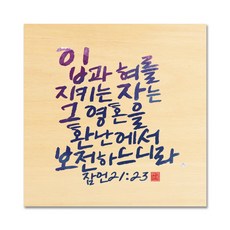 입과 혀를
지키는 자는
그 영혼을
환난에서
보전하느니라
잠언 21:23